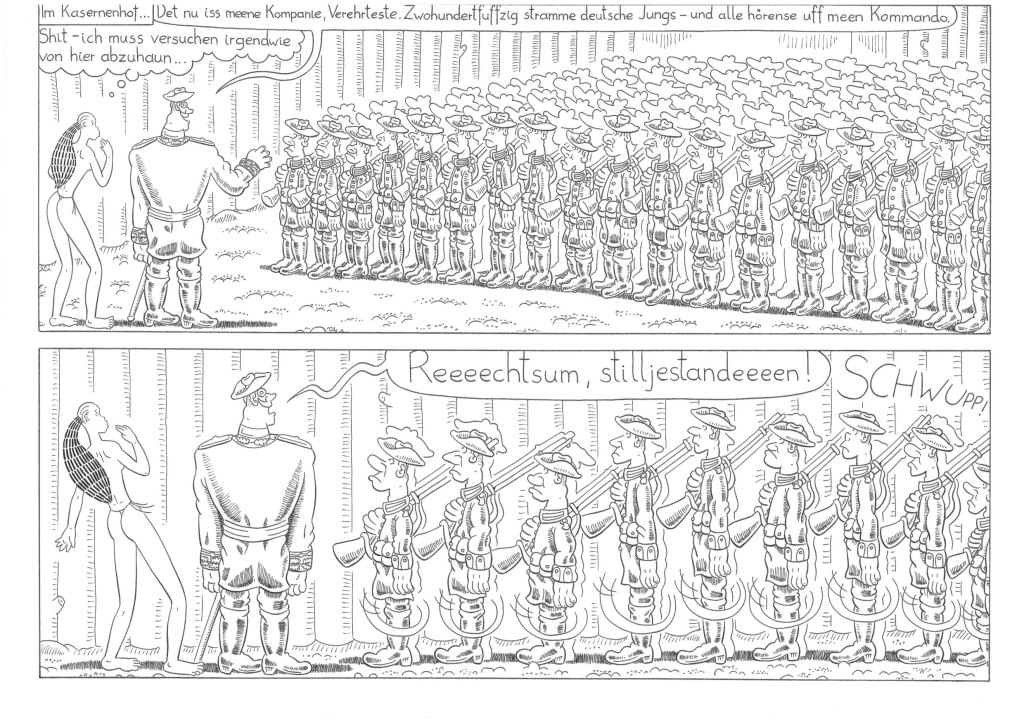 Im Kasernenhof...
Det nu iss meene Kompanie, Verehrteste. Zwohundertfuffzig stramme deutsche Jungs – und alle hörense uff meen Kommando.
Shit – ich muss versuchen irgendwie
von hier abzuhaun...
Reeeechtsum, stilljestandeeeen!
SCHWUPP!